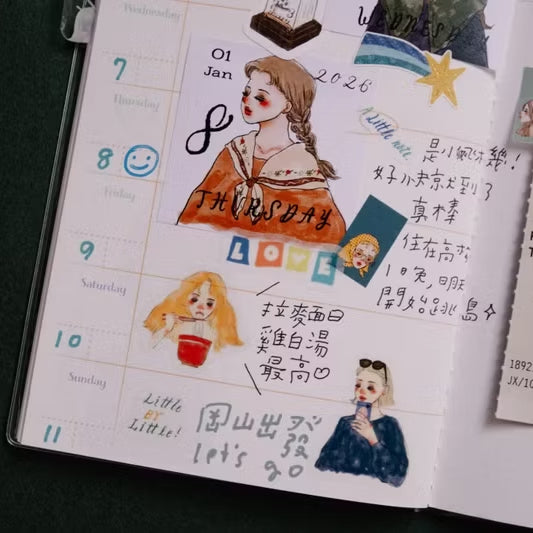 Wednesday
WEDNESDAY
7
Thursday
01
Jan
2026
8
A Little note
8
THURSDAY
真棒
住在高松
1晚,明天
開始跳島
LOVE
Friday
9
Saturday
拉麵
雞白湯
最高♡
10
Sunday
Little
BY
Little!
岡山出發
let's go
11
1892
JX/10